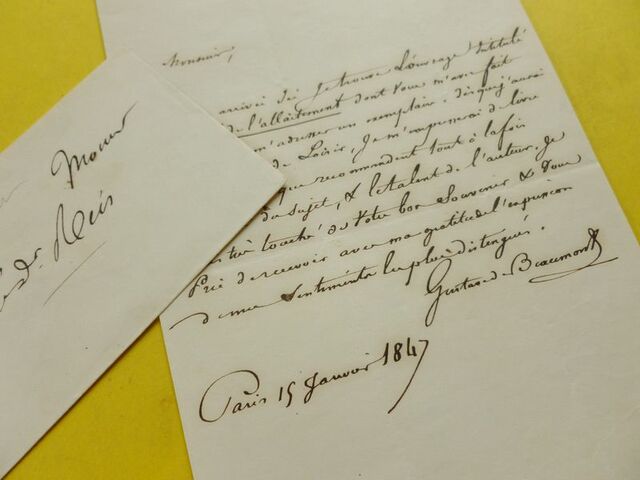 Monsieur,
arrivée ici je trouve l'ouvrage intitulé
de l'allaitement dont vous m'avez fait
m'adresser un exemplaire. dès que j'aurai
de Loisir, je m'empresserai de lire
que recommandent tout à la fois
du sujet, & le talent de l'auteur. Je
très touché de votre bon souvenir & vous
Prie de recevoir avec ma gratitude l'expression
de mes sentiments les plus distingués.
Gustave de Beaumont
Paris 15 Janvier 1847
Monsieur
Dr. Reis